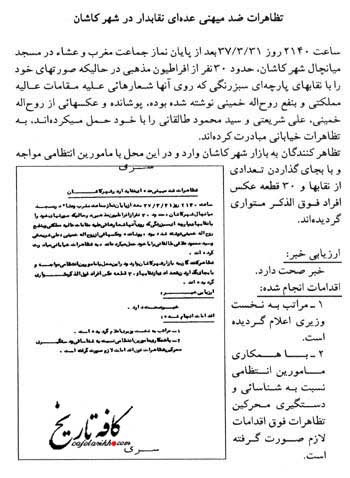 تظاهرات ضد میهنی عده‌ای نقابدار در شهر کاشان
ساعت ۲۱۴۰ روز ۳۷/۳/۳۱ بعد از پایان نماز جماعت مغرب و عشاء در مسجد
میانچال شهر کاشان، حدود ۳۰ نفر از افراطیون مذهبی در حالیکه صورتهای خود
را با نقابهای پارچه‌ای سبزرنگی که روی آنها شعارهائی علیه مقامات عالیه
مملکتی و بنفع روح‌اله خمینی نوشته شده بود، پوشانده و عکسهائی از روح‌اله
خمینی، علی شریعتی و سید محمود طالقانی را با خود حمل میکرده‌اند، به
تظاهرات خیابانی مبادرت کرده‌اند.
تظاهرکنندگان به بازار شهر کاشان وارد و در این محل با مامورین انتظامی مواجه
و با بجای گذاردن تعدادی
از نقابها و ۳۰ قطعه عکس
افراد فوق الذکر متواری
گردیده‌اند.
ارزیابی خبر:
خبر صحت دارد.
اقدامات انجام شده:
۱ـ مراتب به نخست
وزیری اعلام گردیده
است.
۲ـ با همکاری
مامورین انتظامی
نسبت به شناسائی و
دستگیری محرکین
تظاهرات فوق اقدامات
لازم صورت گرفته
است.
سری
تظاهرات ضد میهنی عده‌ای نقابدار در شهر کاشان
ارزیابی خبر:
خبر صحت دارد.
اقدامات انجام شده:
۱ـ مراتب به نخست وزیری اعلام گردیده است.
کافه تاریخ
cafetarikh.com
سری